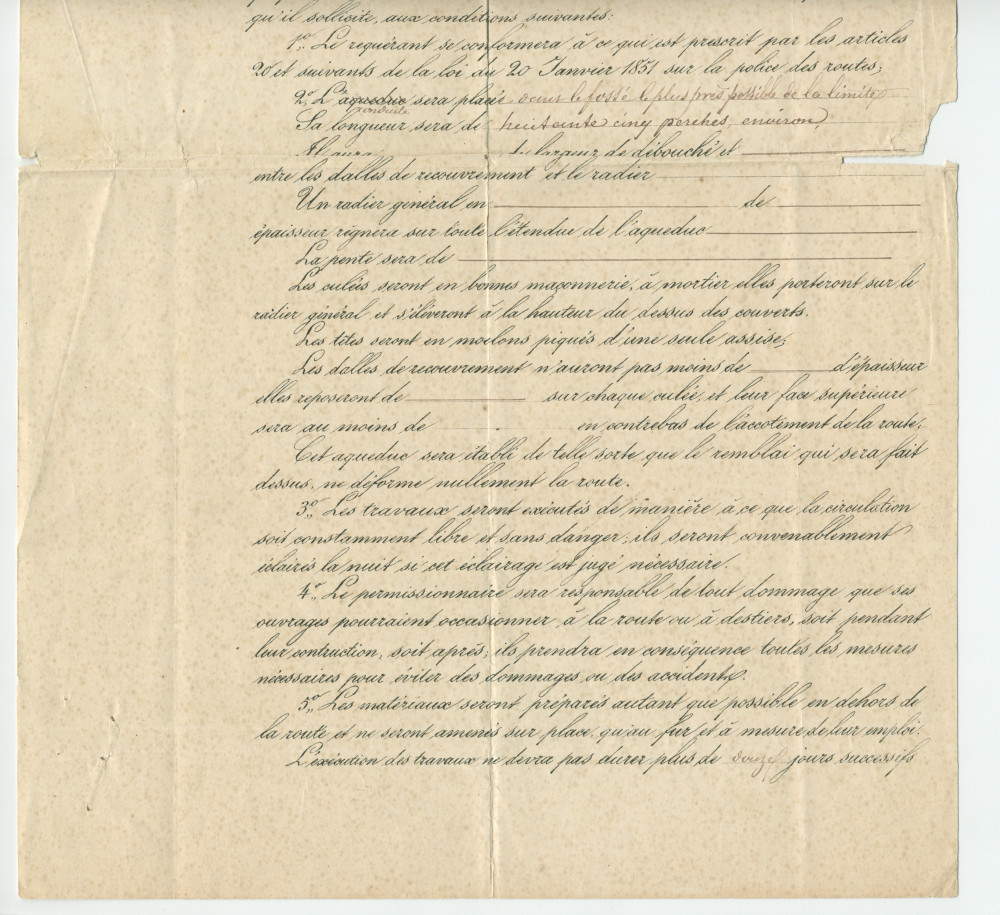 qu'il sollicite, aux conditions suivantes:
1o.. Le requérant se conformera à ce qui est prescrit par les articles
20 et suivants de la loi du 20 Janvier 1851 sur la police des routes;
2o. L'aqueduc sera placé dans le fossé le plus près possible de la limite
conduite
Sa longueur sera de huitante cinq perches, environ,
Il aura de largeur de débouché et
entre les dalles de recouvrement et le radier
Un radier général en de
épaisseur règnera sur toute l'étendue de l'aqueduc
La pente sera de
Les culées seront en bonnes maçonnerie, à mortier elles porteront sur le
radier général et s'élèveront à la hauteur du dessus des couverts.
Les têtes seront en moelons piqués d'une seule assise;
Les dalles de recouvrement n'auront pas moins de d'épaisseur
elles reposeront de sur chaque culée, et leur face supérieure
sera au moins de en contrebas de l'accotement de la route;
Cet aqueduc sera établi de telle sorte que le remblai qui sera fait
dessus, ne déforme nullement la route.
3o.. Les travaux seront exécutés de manière à ce que la circulation
soit constamment libre et sans danger; ils seront convenablement
éclairés la nuit si cet éclairage est jugé nécessaire.
4o.. Le permissionnaire sera responsable de tout dommage que ses
ouvrages pourraient occasionner à la route ou à des tiers, soit pendant
leur contruction, soit après; ils prendra en conséquence toutes les mesures
nécessaires pour éviter des dommages ou des accidents.
5o.. Les matériaux seront préparés autant que possible en dehors de
la route et ne seront amenés sur place, qu'au fur et à mesure de leur emploi.
L'exécution des travaux ne devra pas durer plus de douze jours successifs